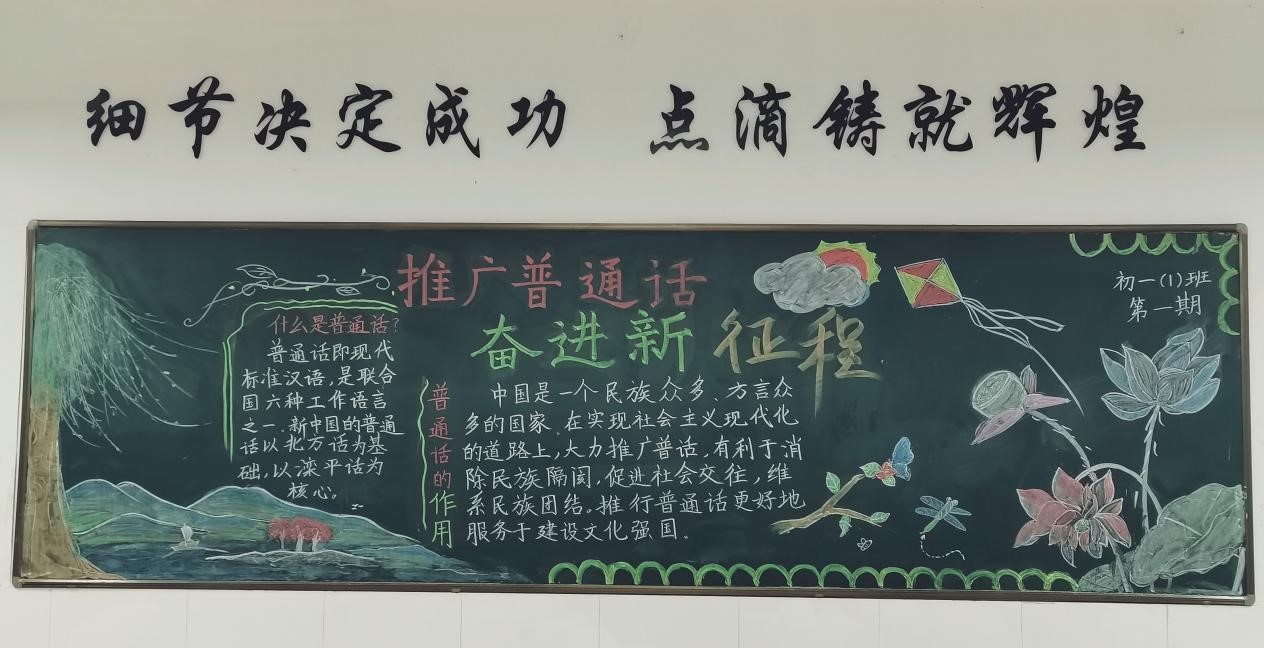 细节决定成功 点滴铸就辉煌
推广普通话
奋进新征程
初一(1)班
第一期
什么是普通话?
普通话即现代
标准汉语,是联合
国六种工作语言
之一.新中国的普通
话以北方话为基
础,以滦平话为
核心。
普通话的作用
中国是一个民族众多、方言众
多的国家.在实现社会主义现代化
的道路上,大力推广普话,有利于消
除民族隔阂,促进社会交往,维
系民族团结。推行普通话更好地
服务于建设文化强国。